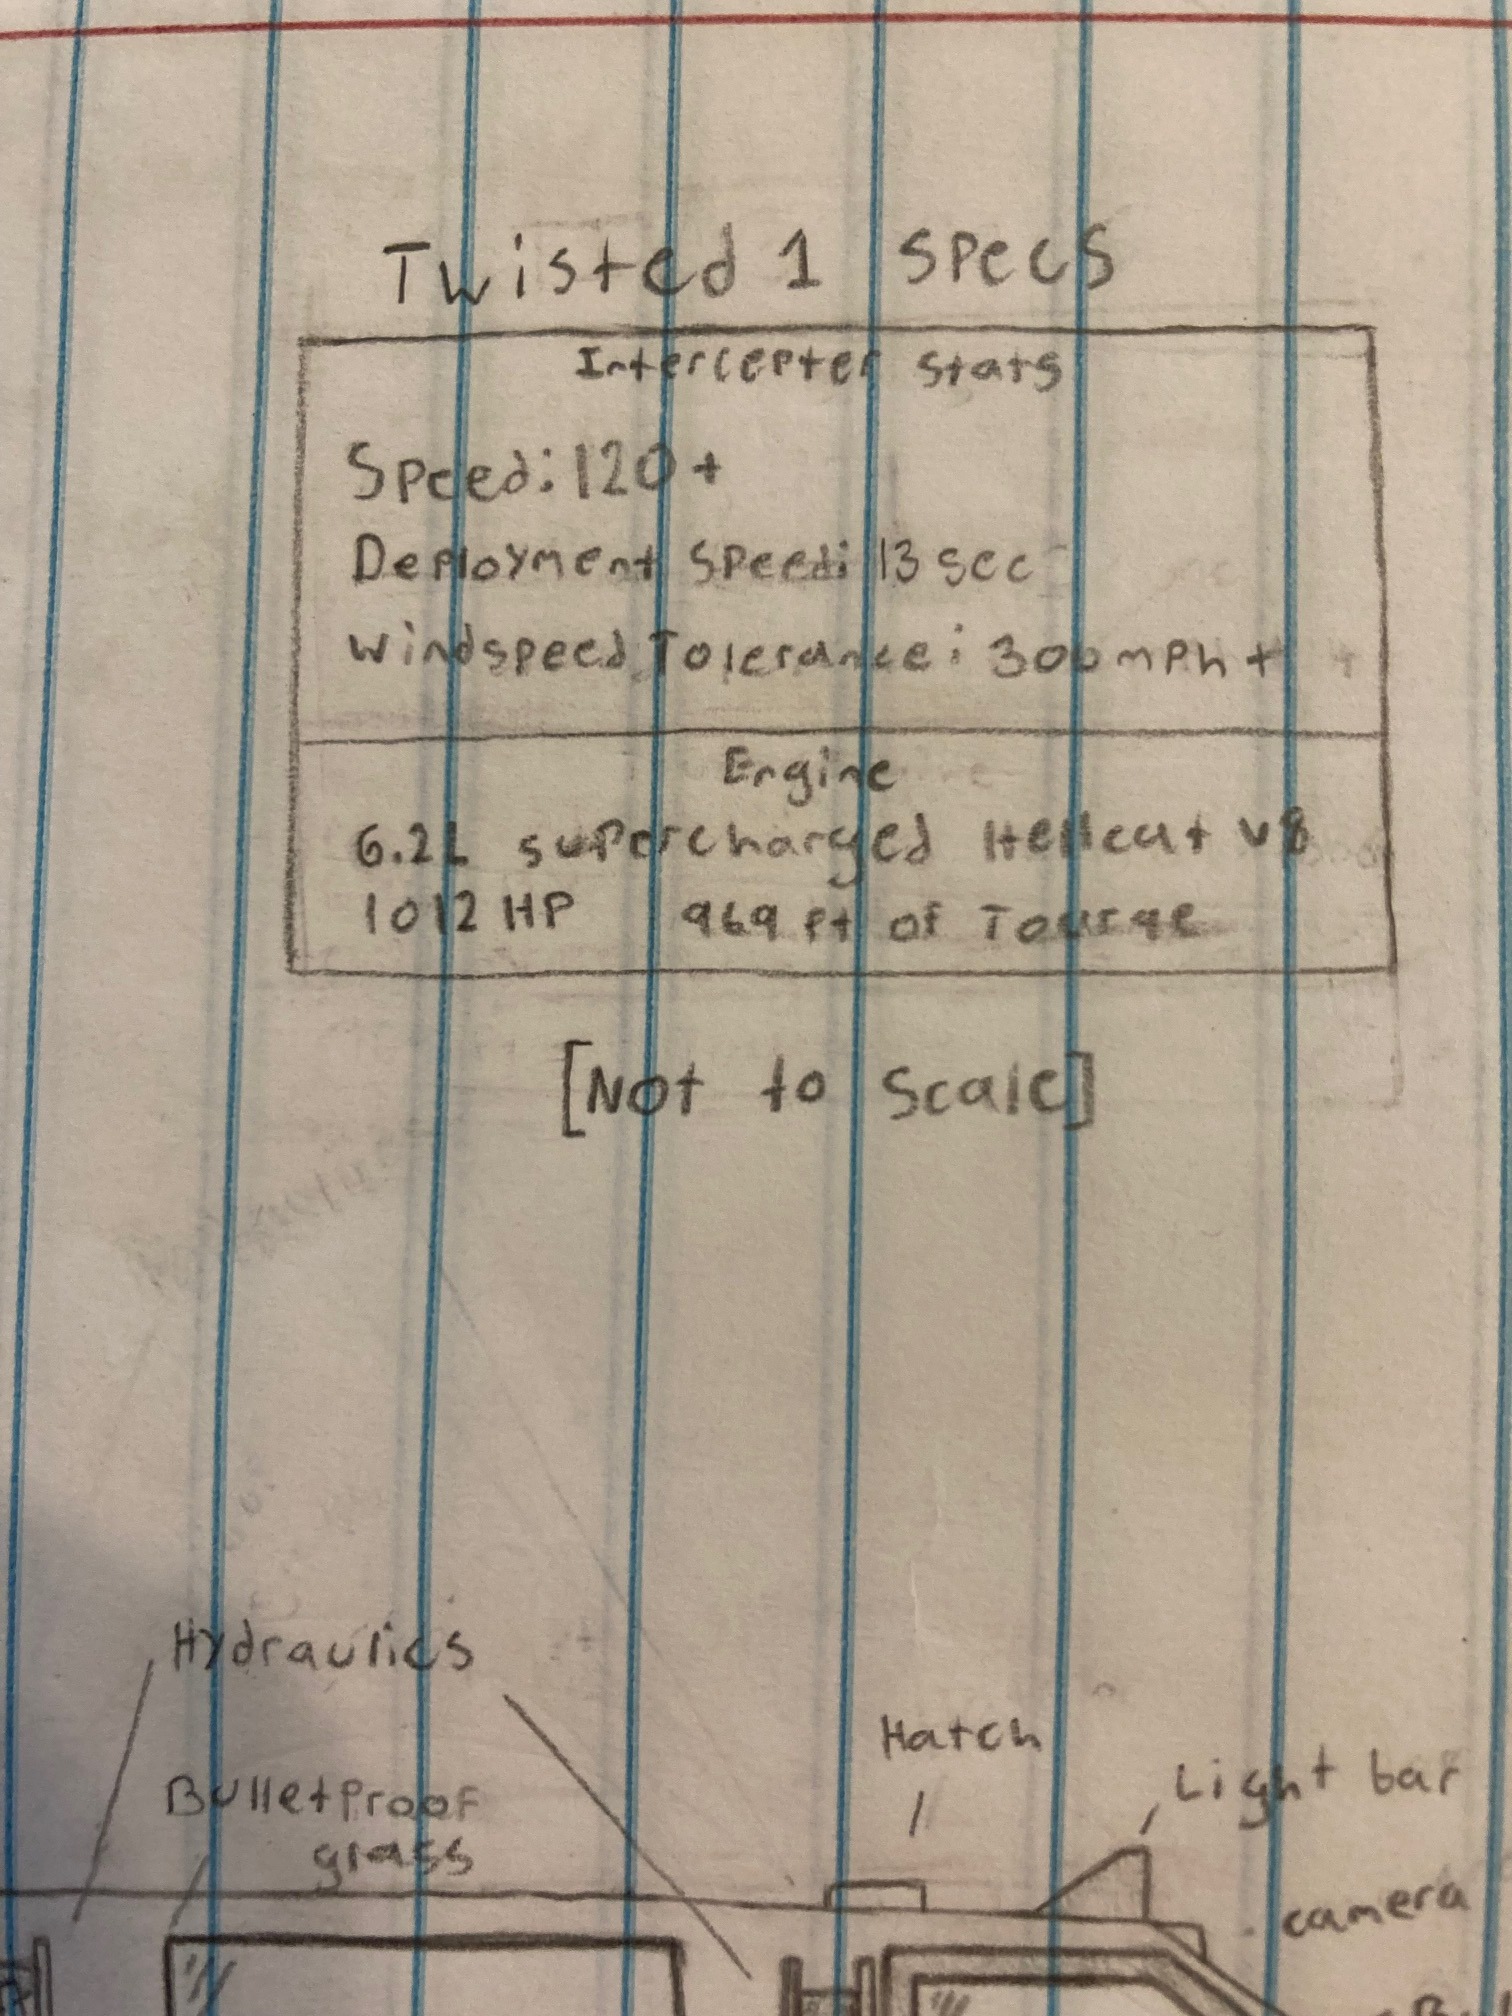 Twisted 1 specs
Intercepter stats
Speed: 120+
Deployment Speed: 13 sec
Windspeed Tolerance: 300mph+
Engine
6.2L supercharged Hellcat V8
1012 HP 969 ft of Tourqe
[Not to Scale]
Hydraulics
Hatch
Light bar
Bulletproof
glass
camera